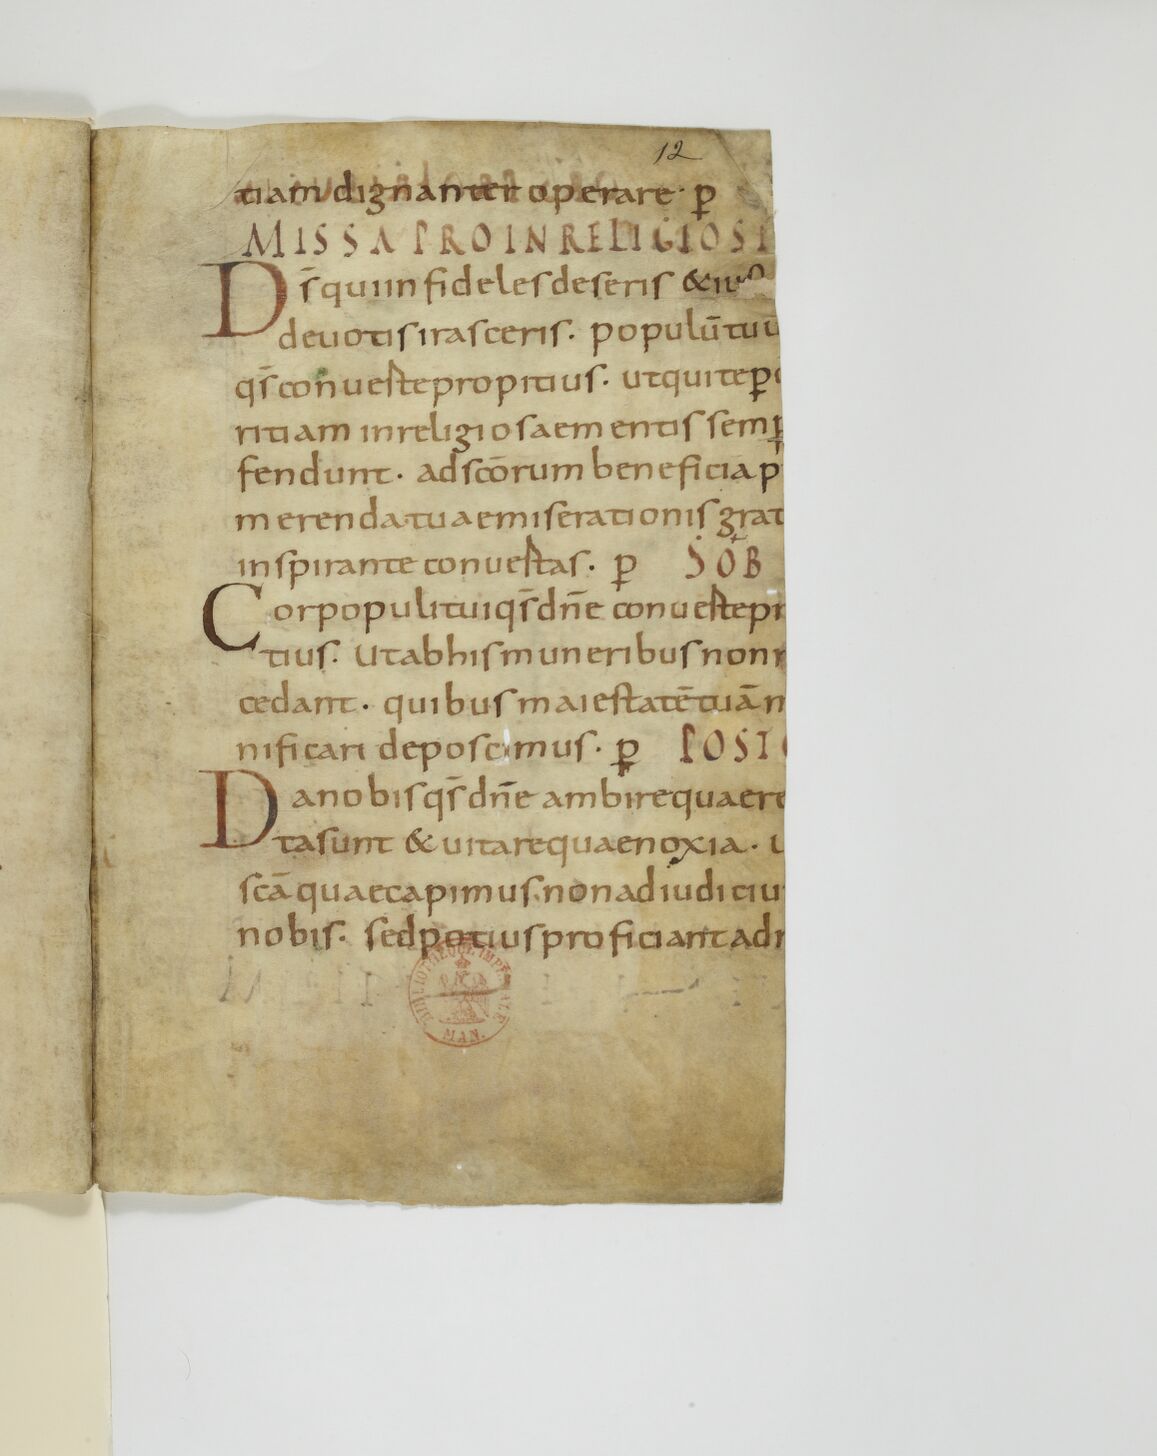 12
tiam dignanter operare · p̱
MISSA PRO INRELIGIOSI
Ds̄ qui infideles deseris &
deuotis irasceris · populū tuū
qs̄ conuerte propitius · ut qui te ꝑ
ritiam inreligiosae mentis semꝑ
fendunt · ad sc̄orum beneficia p
merenda tuae miserationis grat
inspirante conuertas · p̱ SOB
Cor populi tui qs̄ dn̄e conuerte pr
tius · Ut ab his muneribus non r
cedant · quibus maiestatē tuā m
nificari deposcimus · p̱ POST C
Da nobis qs̄ dn̄e ambire quae re
ta sunt & uitare quae noxia · u
sc̄a quae capimus · non ad iudiciu
nobis · sed potius proficiant ad r
BIBLIOTHEQUE IMPERIALE
MAN.